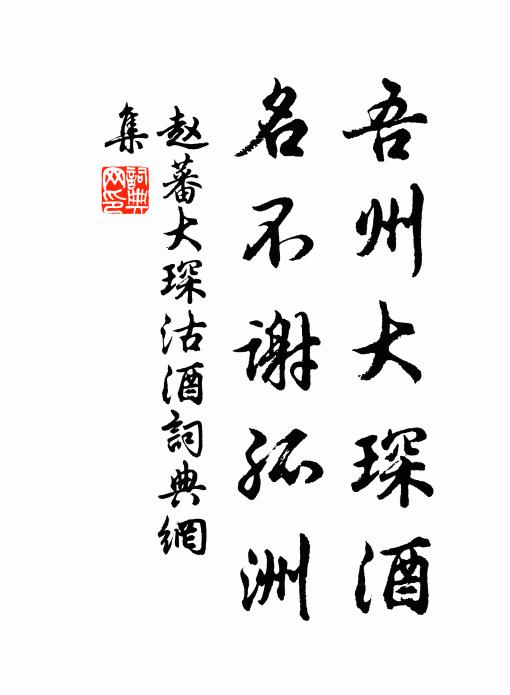 吾州大琛酒
名不谢孤洲
赵蕃大琛沽酒詞典網
集
詞典
网印